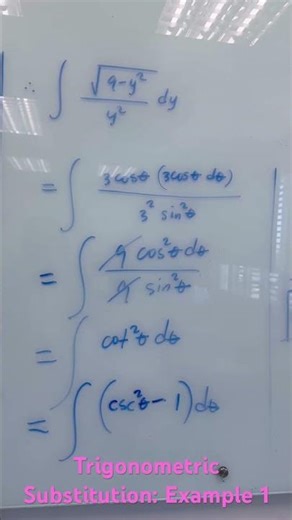 ∴ ∫ √(9-y²)/y² dy
= ∫ 3cosθ (3cosθ dθ) / 3² sin²θ
= ∫ 9 cos²θ dθ / 9 sin²θ
= ∫ cot²θ dθ
= ∫ (csc²θ - 1) dθ
Trigonometric
Substitution: Example 1